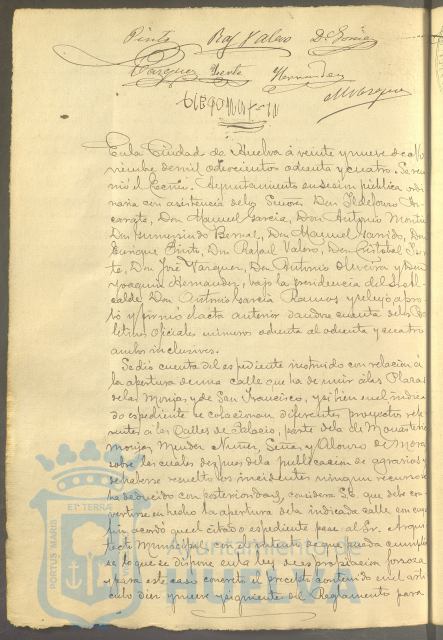 Pinto Raf Valero D. Gomez
Vazquez Fuerte Hernandez
M Vazquez
DIEGO MARTIN
En la Ciudad de Huelva á veinte y nueve de No-
viembre de mil ochocientos ochenta y cuatro. Se reu-
nió el Excmo. Ayuntamiento en sesion pública ordi-
naria con asistencia de los Señores Don Ildefonso
Don Manuel Garcia, Don Antonio
Don Gumersindo Bernal, Don Manuel Garrido, Don
Enrique Pinto, Don Rafael Valero, Don Cristobal
Don José Vazquez, Don Antonio Oliveira y Don
Joaquin Hernandez, bajo la presidencia del Sr. Al-
calde Don Antonio Garcia Ramos y se leyó apro-
bó y firmó el acta anterior dandose cuenta de los Bo-
letines Oficiales números ochenta al ochenta y cuatro
ambos inclusives.
Se dió cuenta del espediente instruido con relacion á
la apertura de una calle que ha de unir á las Plazas
de las Monjas y de San Francisco, y si bien en el indica-
do espediente se colacionan diferentes proyectos refe-
rentes á las Calles de Palacio, parte de la de Monasterio
Monjas, Mendez Nuñez, Señas y Alonso de Mora
sobre los cuales despues de la publicacion de agravios y
de haberse resuelto los incidentes ningun recurso se
ha deducido con posterioridad, considera S.E. que debe con-
vertirse en hecho la apertura de la indicada calle con cuyo
fin acordó que el citado espediente pase al Sr. Arqui-
tecto Municipal con el intento de que pueda cumplir-
se lo que se dispone en la ley de espropiacion forzosa
y para este caso concreto el precepto contenido en el artí-
culo diez y nueve y siguiente del Reglamento para
PORTUS MARIS ET TERRAE
Ayuntamiento de
HUELVA